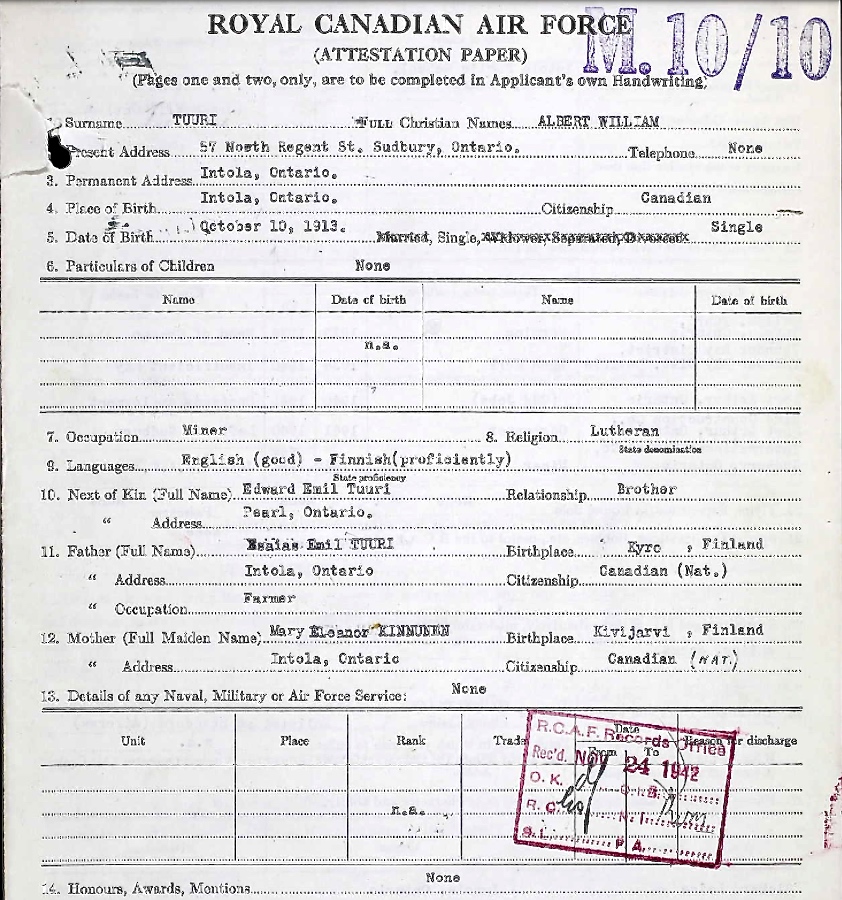 ROYAL CANADIAN AIR FORCE
(ATTESTATION PAPER)
M.10/10
(Pages one and two, only, are to be completed in Applicant's own Handwriting)
Surname TUURI FULL Christian Names ALBERT WILLIAM
Present Address 57 North Regent St. Sudbury, Ontario. Telephone None
3. Permanent Address Intola, Ontario.
4. Place of Birth Intola, Ontario. Citizenship Canadian
5. Date of Birth October 10, 1913. Married, Single, Widower, Separated, Divorced Single
6. Particulars of Children None
Name Date of birth Name Date of birth
n.a.
7. Occupation Miner 8. Religion Lutheran
State denomination
9. Languages English (good) - Finnish(proficiently)
State proficiency
10. Next of Kin (Full Name) Edward Emil Tuuri Relationship Brother
" Address Pearl, Ontario.
11. Father (Full Name) Esaias Emil TUURI Birthplace Kyro , Finland
" Address Intola, Ontario Citizenship Canadian (Nat.)
" Occupation Farmer
12. Mother (Full Maiden Name) Mary Eleanor KINNUNEN Birthplace Kivijarvi , Finland
" Address Intola, Ontario Citizenship Canadian (NAT.)
13. Details of any Naval, Military or Air Force Service: None
Unit Place Rank Trade Date From To Reason for discharge
R.C.A.F. Records Office
Rec'd. Nov 24 1942
O. K.
R. C.
n.a.
S. L. P. A.
14. Honours, Awards, Mentions None